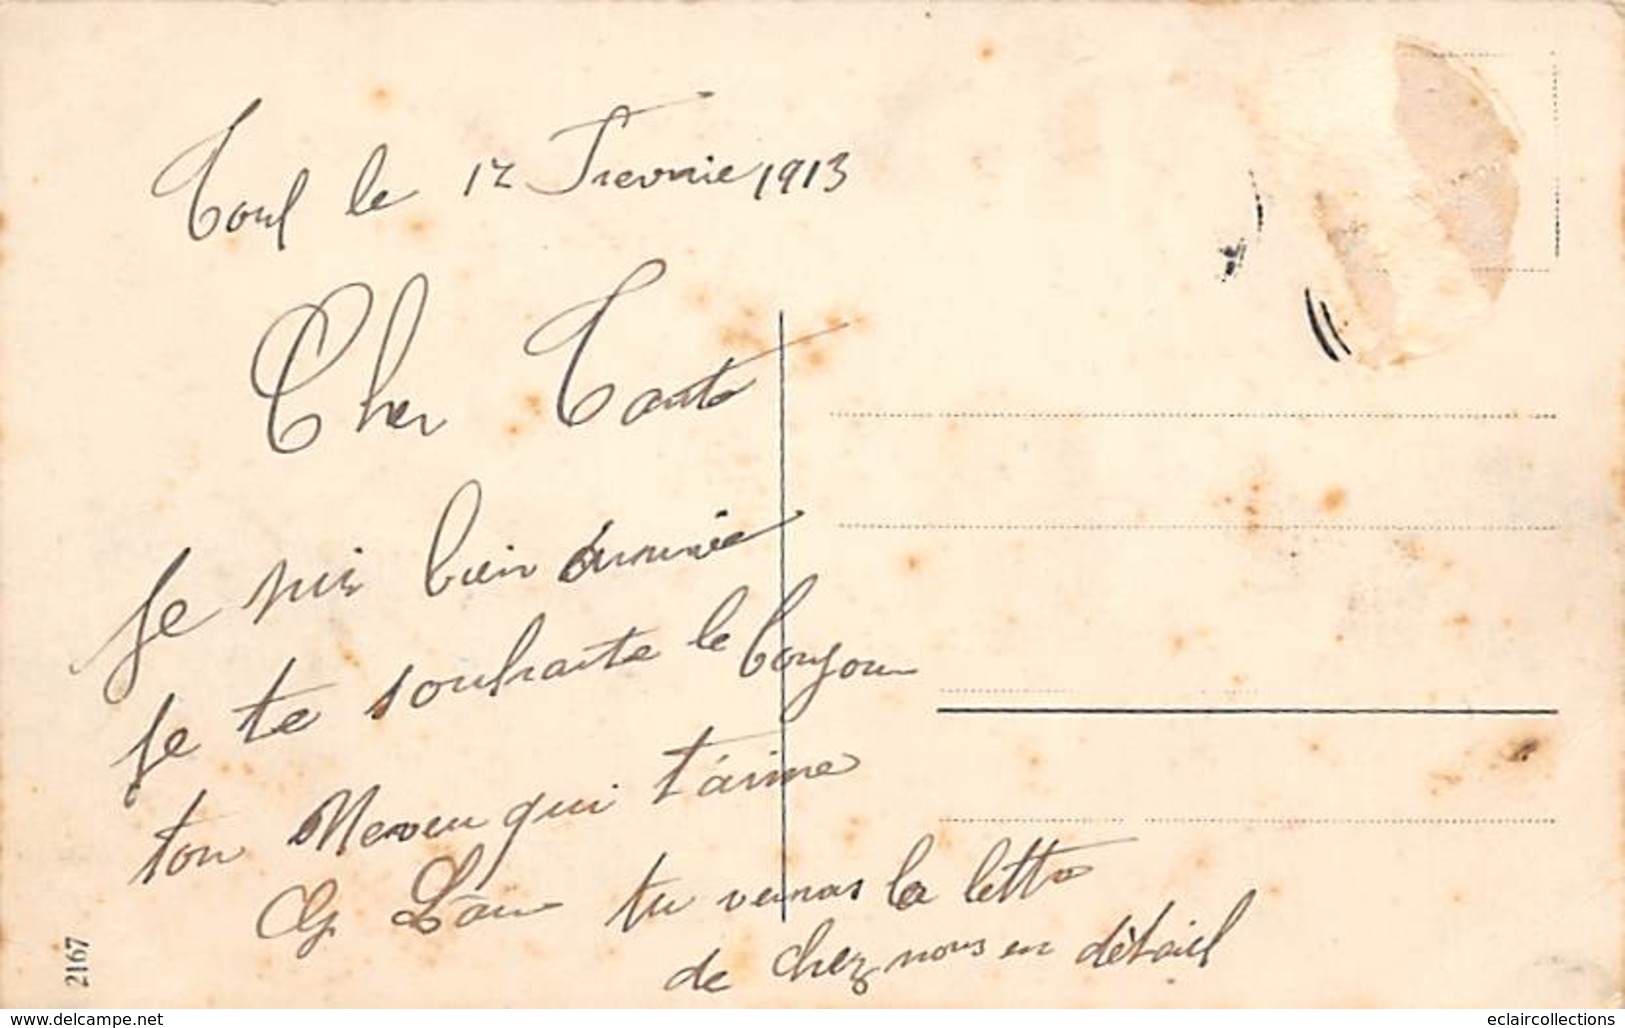 Toul le 12 Frevrie 1913
Cher Tante
Je suis bien
Je te souhaite le bonjour
ton Neveu qui t'aime
tu verras la lettre
de chez nous en détail
2167
www.delcampe.net
eclaircollections